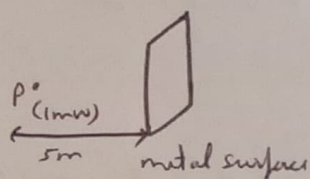 P
(1mW)
5m
metal surface